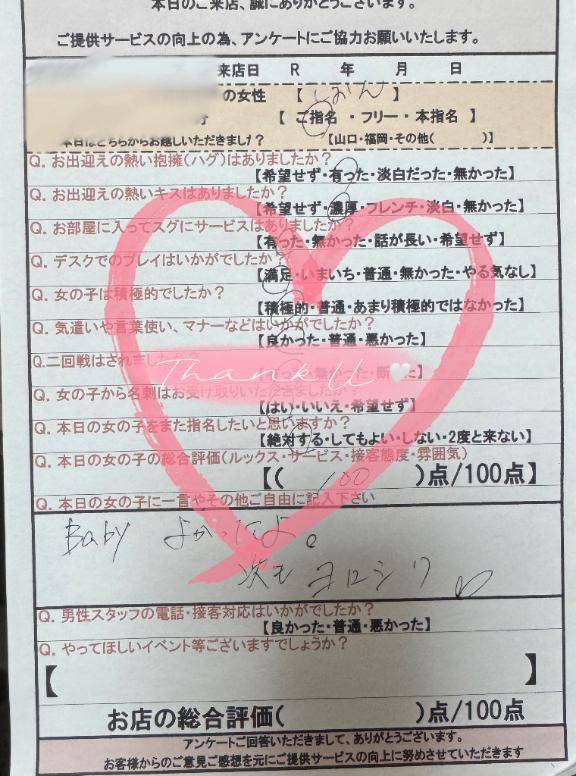 本日のご来店、誠にありがとうございます。
ご提供サービスの向上の為、アンケートにご協力お願いいたします。
来店日 R 年 月 日
の女性 【 しおん 】
【 ご指名 ・ フリー ・ 本指名 】
本日はどちらからお越しいただきました? 【山口・福岡・その他( )】
Q. お出迎えの熱い抱擁(ハグ)はありましたか?
【希望せず・有った・淡白だった・無かった】
Q. お出迎えの熱いキスはありましたか?
【希望せず・濃厚・フレンチ・淡白・無かった】
Q. お部屋に入ってスグにサービスはありましたか?
【有った・無かった・話が長い・希望せず】
Q. デスクでのプレイはいかがでしたか?
【満足・いまいち・普通・無かった・やる気なし】
Q. 女の子は積極的でしたか?
【積極的・普通・あまり積極的ではなかった】
Q. 気遣いや言葉使い、マナーなどはいかがでしたか?
【良かった・普通・悪かった】
Q.二回戦はされましたか?
Thank U
無かった・断
た】
Q. 女の子から名刺はお受け取りいただきましたか
【はい・いいえ・希望せず】
Q. 本日の女の子をまた指名したいと思いますか?
【絶対する・してもよい・しない・2度と来ない】
Q. 本日の女の子の総合評価(ルックス・サービス・接客態度・雰囲気)
【( 100 )点/100点】
Q. 本日の女の子に一言やその他ご自由に記入下さい
Baby よか
次も ヨロシク
Q. 男性スタッフの電話・接客対応はいかがでしたか?
【良かった・普通・悪かった】
Q. やってほしいイベント等ございますでしょうか?
【 】
お店の総合評価( )点/100点
アンケートご回答いただきまして、ありがとうございます。
お客様からのご意見ご感想を元にご提供サービスの向上に努めさせていただきます